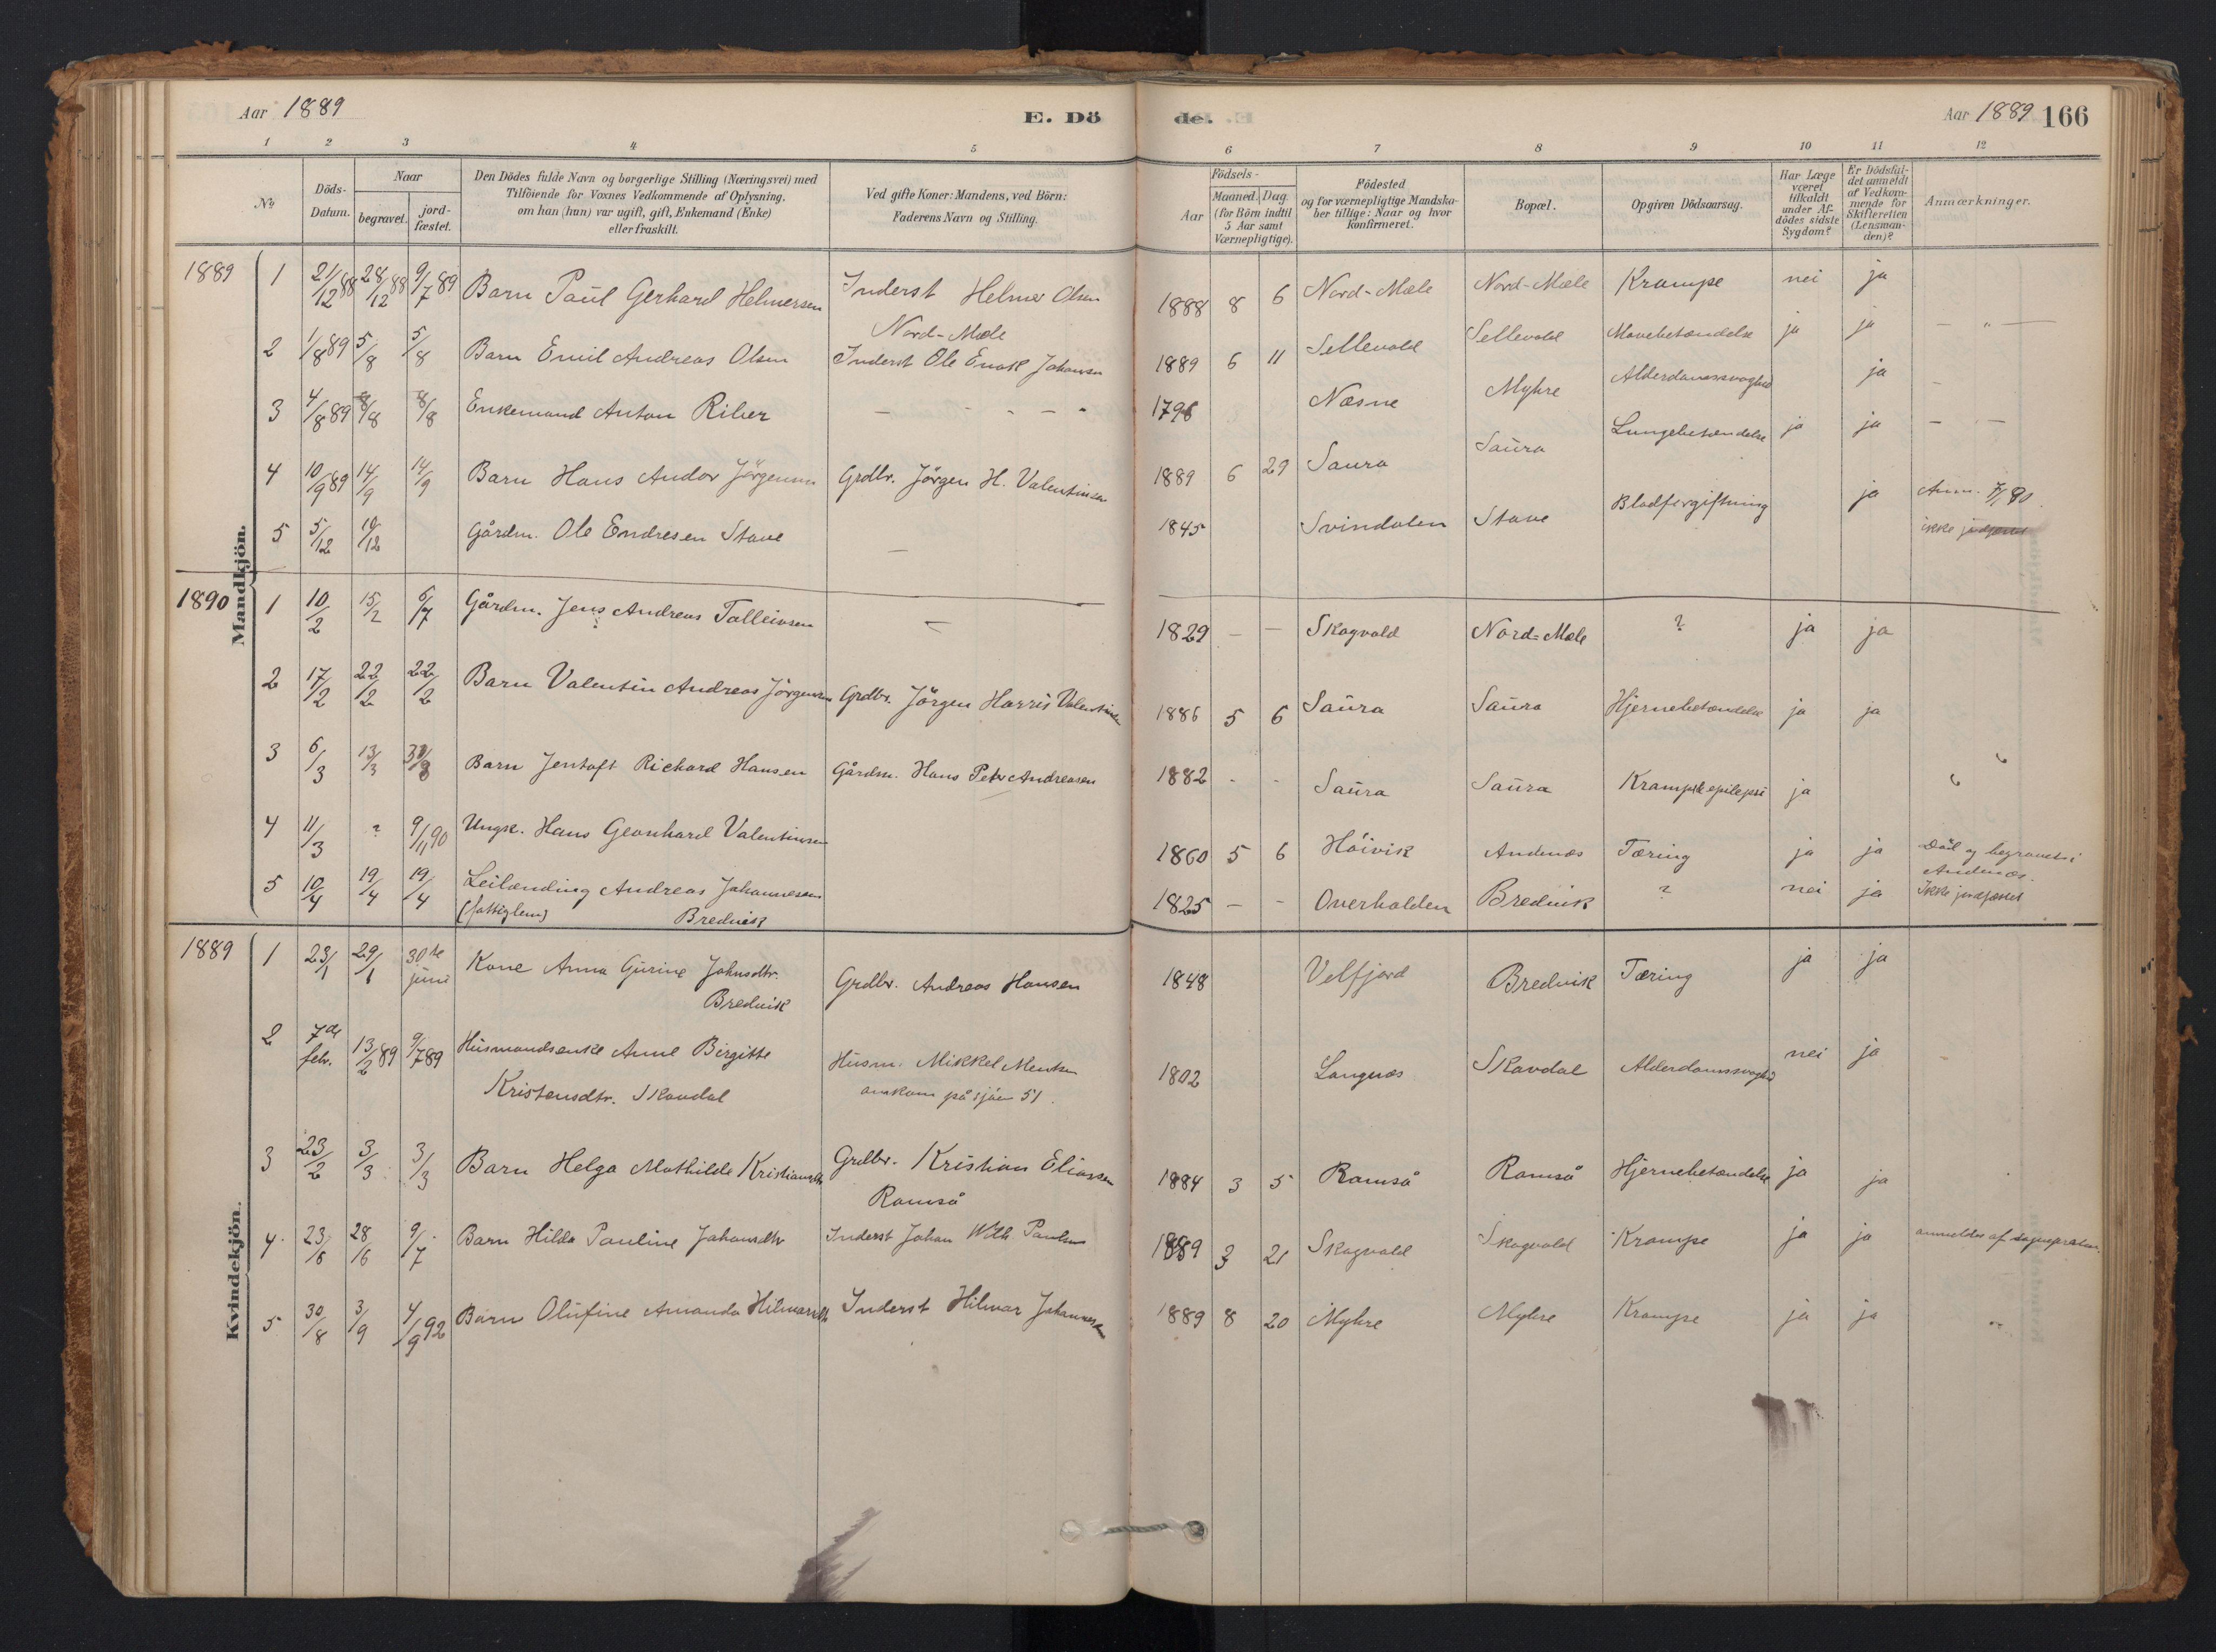 Aar 1889 E. Dö de. Aar 1889 166
1 2 3 4 5 6 7 8 9 10 11 12
No. Döds-Datum. Naar begravet. jord-fæstet. Den Dödes fulde Navn og borgerlige Stilling (Næringsvei) med Tilföiende for Voxnes Vedkommende af Oplysning, om han (hun) var ugift, gift, Enkemand (Enke) eller fraskilt. Ved gifte Koner: Mandens, ved Börn: Faderens Navn og Stilling. Födsels- Aar Maaned. Dag. (for Börn indtil 5 Aar samt Værnepligtige). Födested og for værnepligtige Mandskaber tillige: Naar og hvor Konfirmeret. Bopæl. Opgiven Dödsaarsag. Har Læge været tilkaldt under Afdödes sidste Sygdom? Er Dödsfaldet anmeldt af Vedkommende for Skifteretten (Lensmanden)? Anmærkninger.
Mandkjön.
1889 1 21/12 88 28/12 88 9/7 89 Barn Paul Gerhard Helmersen Inderst Helmer Olsen Nord-Mæle 1888 8 6 Nord-Mæle Nord-Mæle Krampe nei ja
2 1/8 89 5/8 5/8 Barn Emil Andreas Olsen Inderst Ole Enok Johansen 1889 6 11 Sellevold Sellevold Mavebetændelse ja ja — " —
3 4/8 89 8/8 8/8 Enkemand Anton Riber — - - - - 1796 Næsne Myhre Alderdomssvaghed ja —
4 10/9 89 14/9 14/9 Barn Hans Andor Jörgensen Grdbr. Jörgen H. Valentinsen 1889 6 29 Saura Saura Lungebetændelse ja ja — —
5 5/12 10/12 Gårdm. Ole Endresen Stave — 1845 Svindalen Stave Blodforgiftning ja Anm. 7/1 90.
ikke
1890 1 10/2 15/2 6/7 Gårdm. Jens Andreas Tolleivsen — 1829 — — Skogvold Nord-Mæle ? ja ja
2 17/2 22/2 22/2 Barn Valentin Andreas Jörgensen Grdbr. Jörgen Harris Valentinsen 1886 5 6 Saura Saura Hjernebetændelse ja ja
3 6/3 13/3 31/8 Barn Jentoft Richard Hansen Gårdm. Hans Peter Andreasen 1882 - - Saura Saura Krampe epilepsi ja
4 11/3 ? 9/11 90 Ungk. Hans Geonhard Valentinsen 1860 5 6 Höivik Andenæs Tæring ja ja Död og begravet i Andenæs.
5 10/4 19/4 19/4 Leilænding Andreas Johannesen (fattiglem) Bredvik 1825 — — Overhalden Bredvik ? nei ja Ikke jordfæstet
Kvindekjön.
1889 1 23/1 29/1 30te juni Kone Anna Gurine Johnsdtr. Bredvik Grdbr. Andreas Hansen 1848 Velfjord Bredvik Tæring ja ja
2 7de febr. 13/2 89 9/7 89 Husmandsenke Anne Birgitte Kristensdtr. Skavdal Husm. Mikkel Mentsen omkom på sjöen 51. 1802 Langnæs Skavdal Alderdomssvaghed nei ja
3 23/2 3/3 3/3 Barn Helga Mathilde Kristiansdtr. Grdbr. Kristian Eliassen Ramså 1884 3 5 Ramså Ramså Hjernebetændelse ja ja
4 23/6 28/6 9/7 Barn Hilda Pauline Johansdtr. Inderst Johan Wilh. Paulsen 1889 3 21 Skogvold Skogvold Krampe ja ja anmeldes af sognepræsten.
5 30/8 3/9 4/9 92 Barn Olufine Amanda Hilmarsdtr. Inderst Hilmar Johannesen 1889 8 20 Myhre Myhre Krampe ja ja "